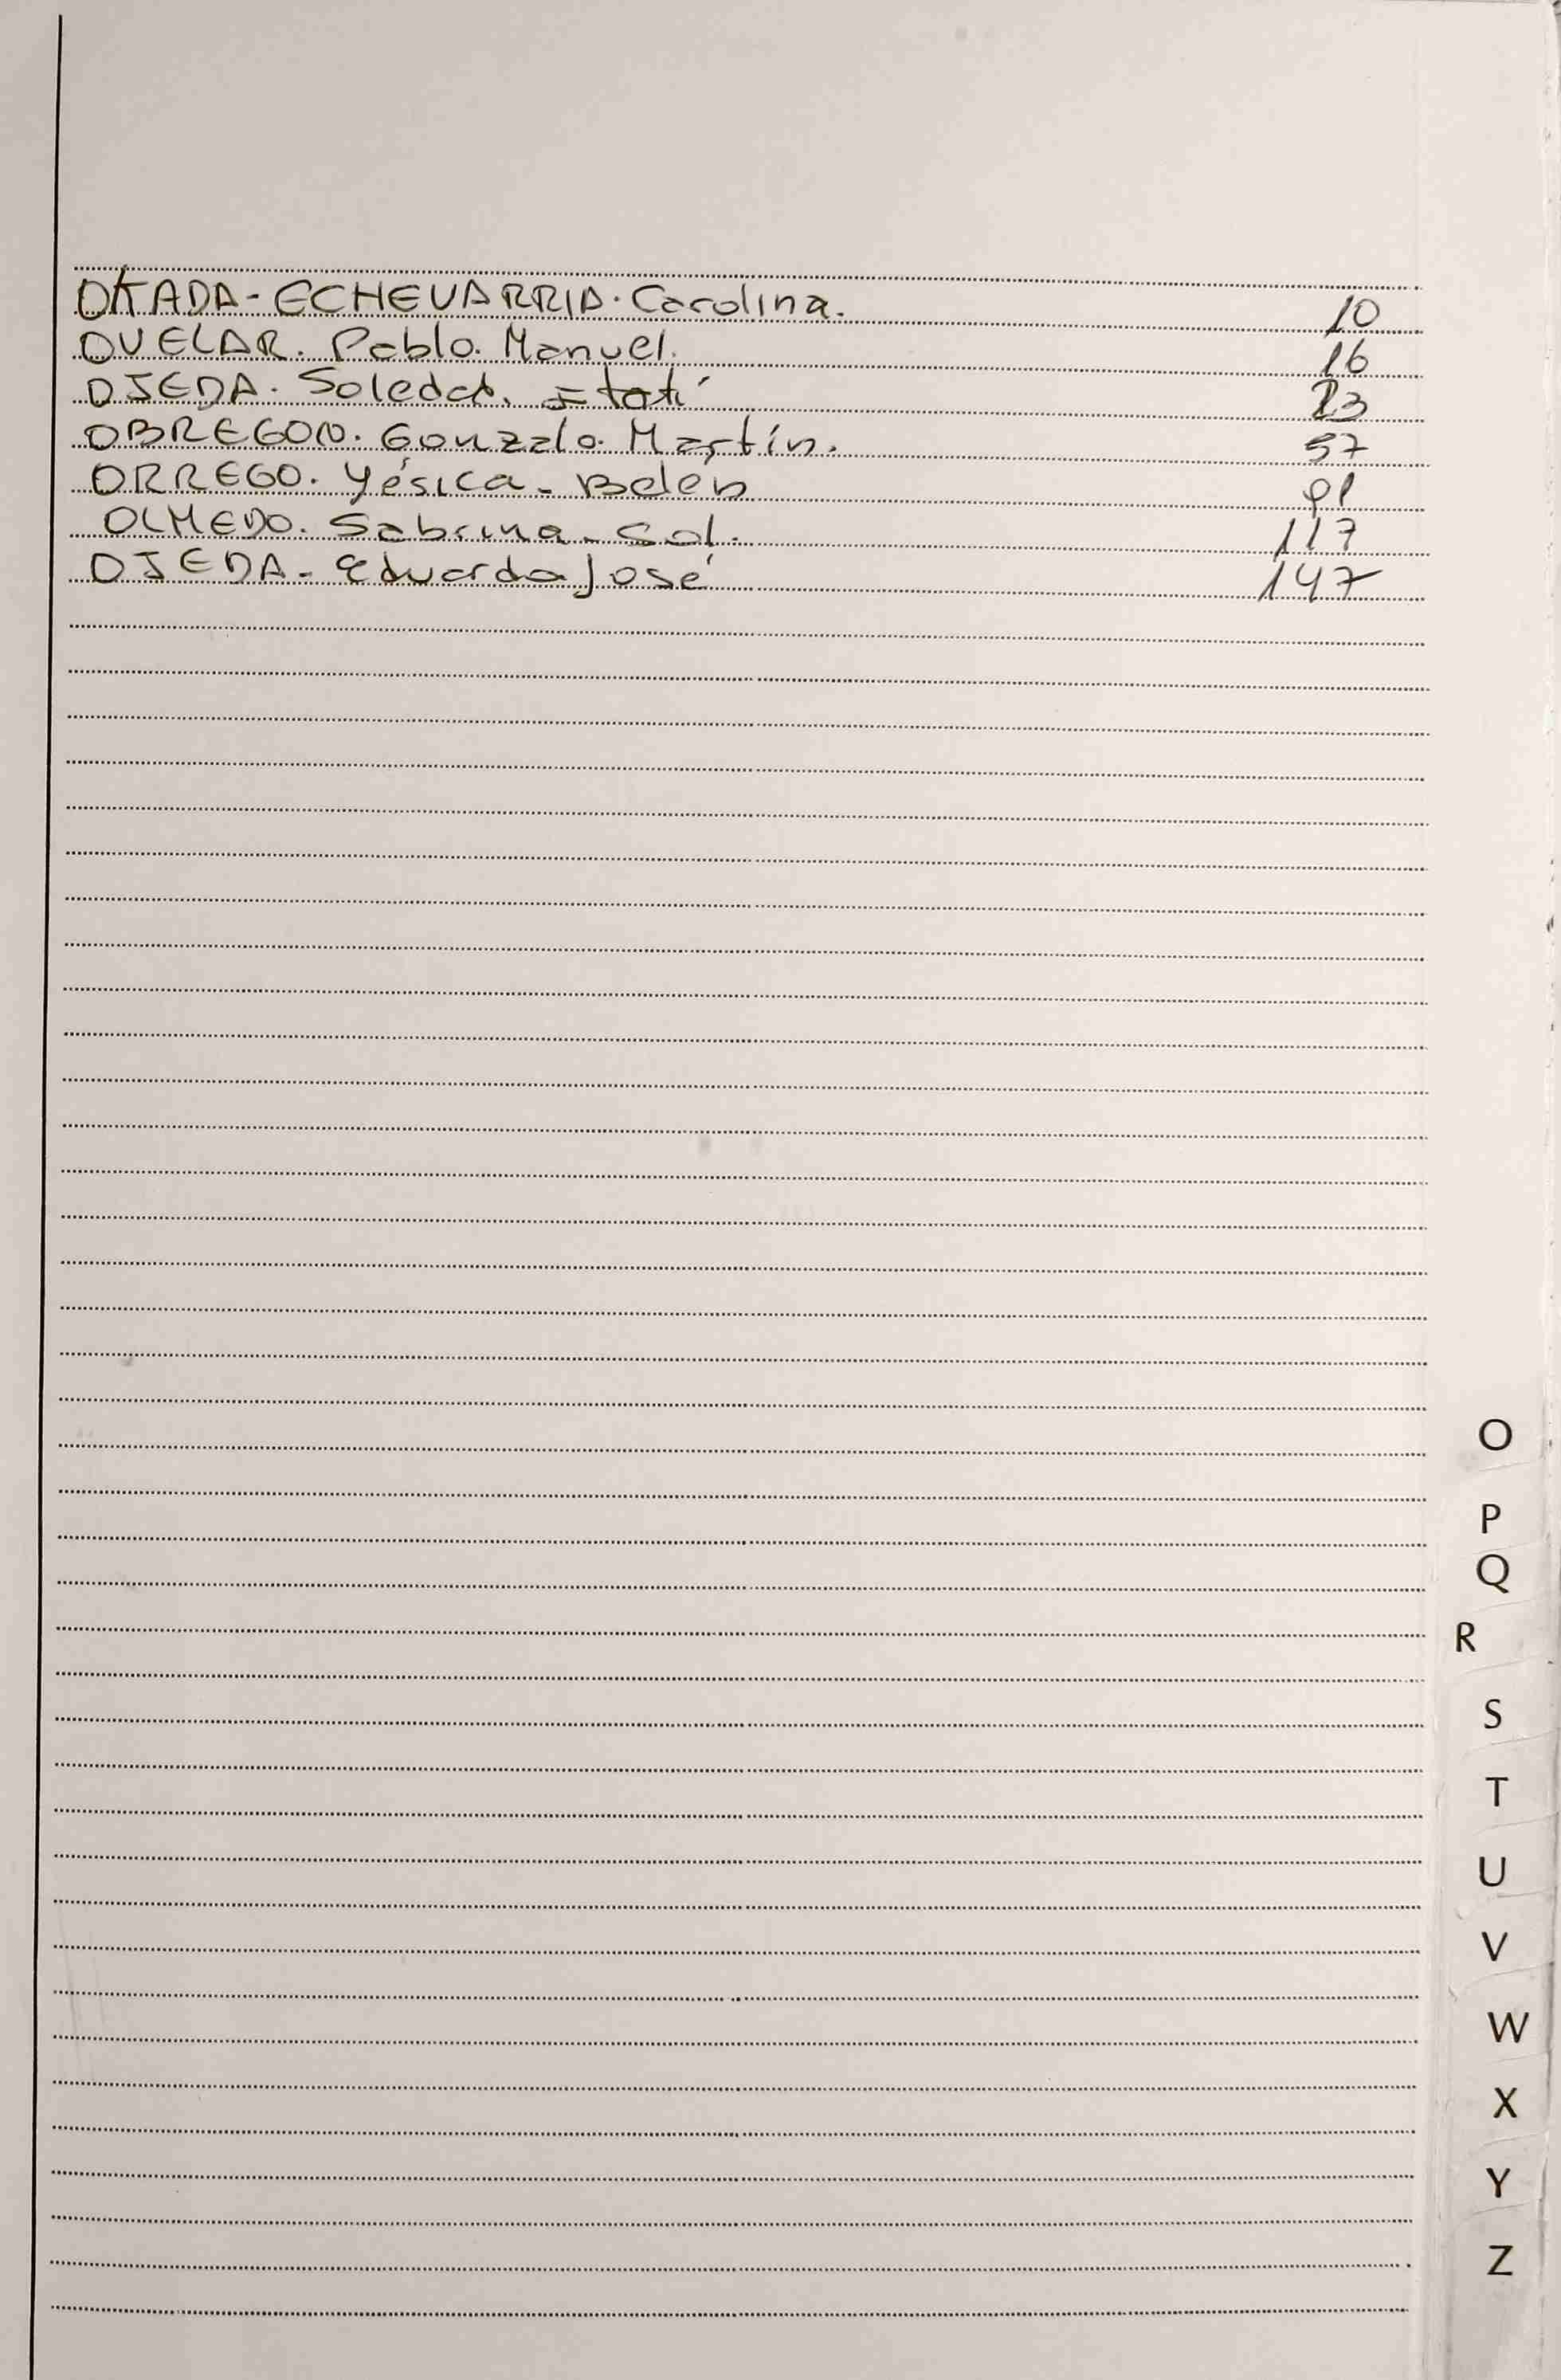 OKADA-ECHEVARRIA. Carolina. 10
OVELAR. Pablo. Manuel. 16
OJEDA. Soledad. Itatí 23
OBREGON. Gonzalo. Martín. 57
ORREGO. Yésica. Belen 91
OLMEDO. Sabrina. Sol. 117
OJEDA. Eduardo José 147
O
P
Q
R
S
T
U
V
W
X
Y
Z